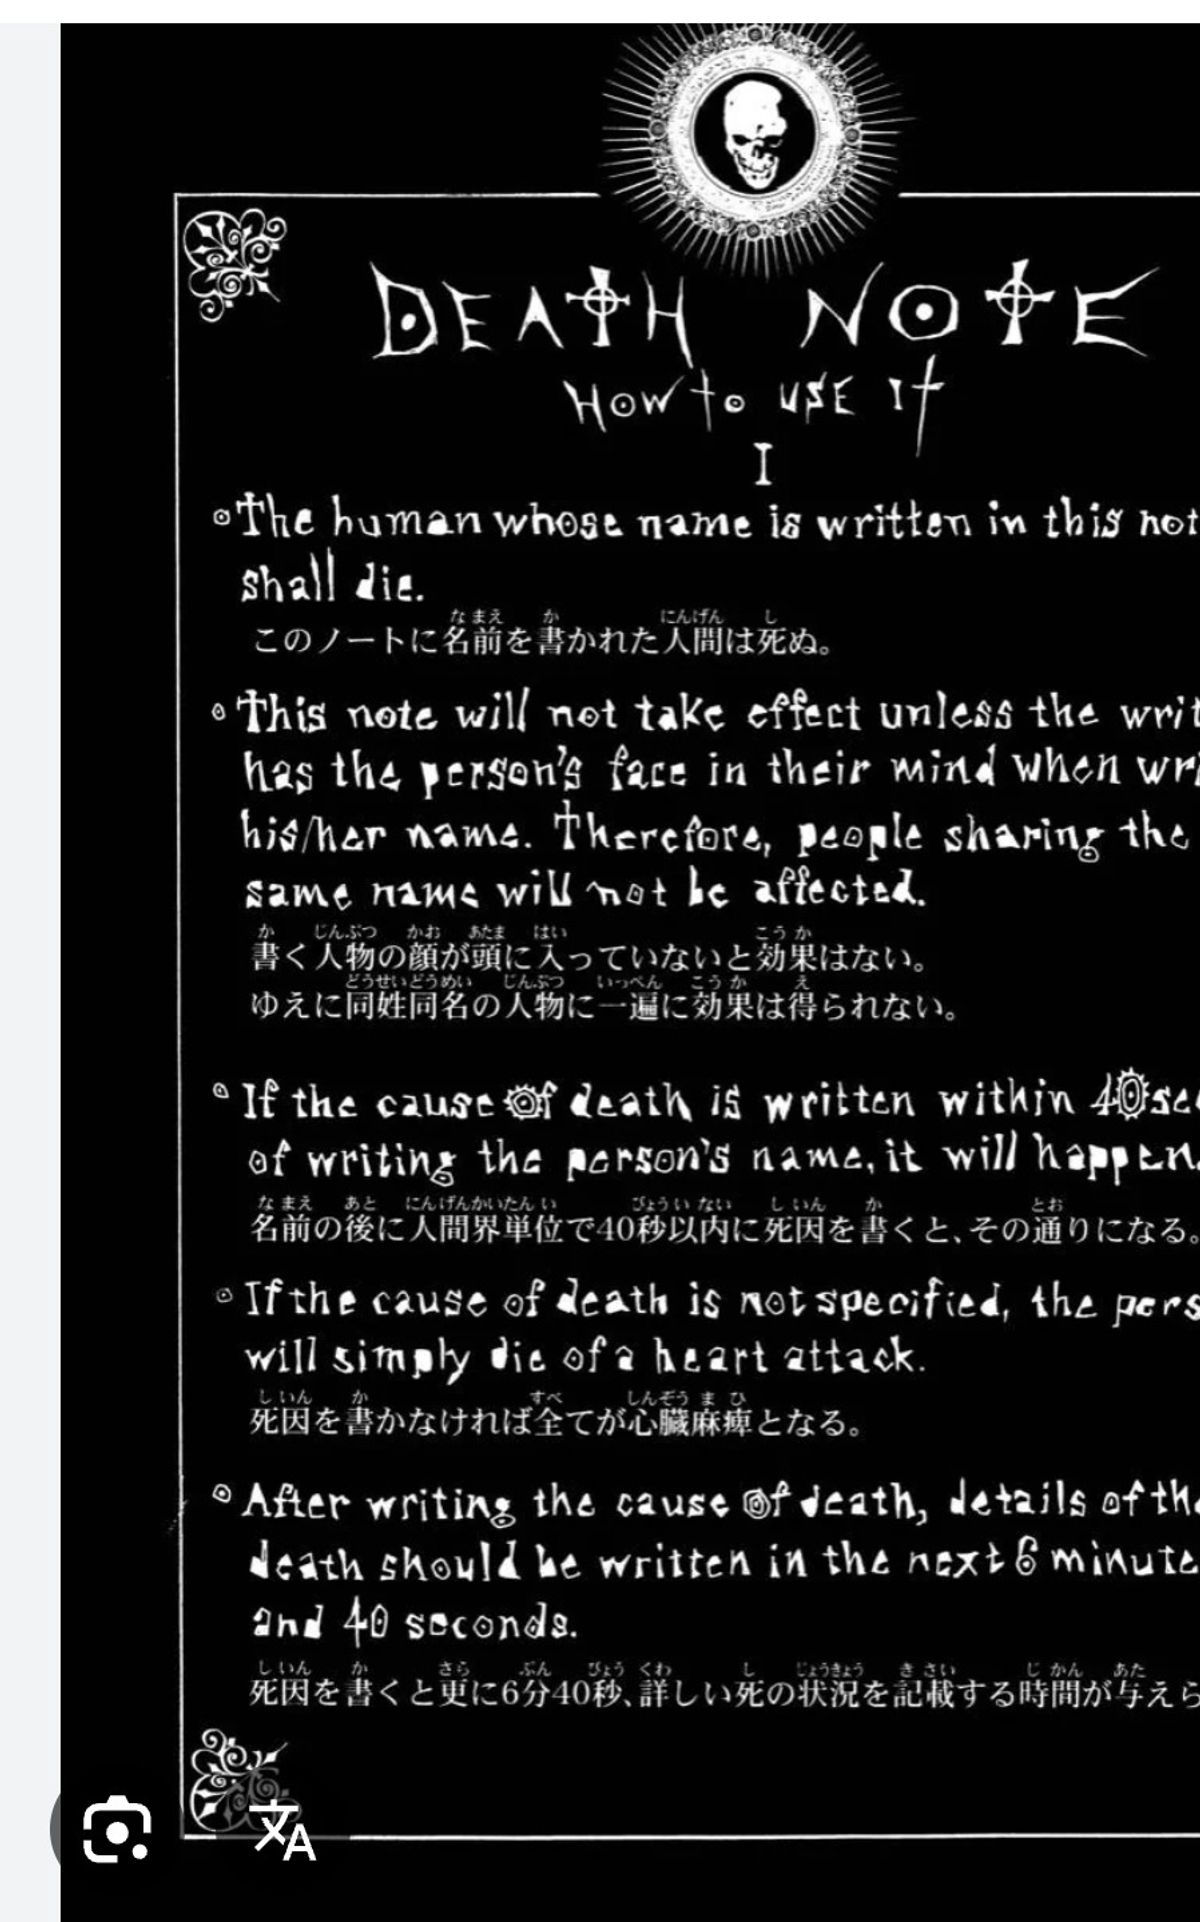 DEATH NOTE
HOW to USE It
I
The human whose name is written in this not
shall die.
このノートに名前を書かれた人間は死ぬ。
This note will not take effect unless the writ
has the person's face in their mind when wri
his/her name. Therefore, people sharing the
same name will not be affected.
書く人物の顔が頭に入っていないと効果はない。
ゆえに同姓同名の人物に一遍に効果は得られない。
If the cause of death is written within 40 sec
of writing the person's name, it will happen.
名前の後に人間界単位で40秒以内に死因を書くと、その通りになる。
If the cause of death is not specified, the pers
will simply die of a heart attack.
死因を書かなければ全てが心臓麻痺となる。
After writing the cause of death, details of the
death should be written in the next 6 minute
and 40 seconds.
死因を書くと更に6分40秒、詳しい死の状況を記載する時間が与えら